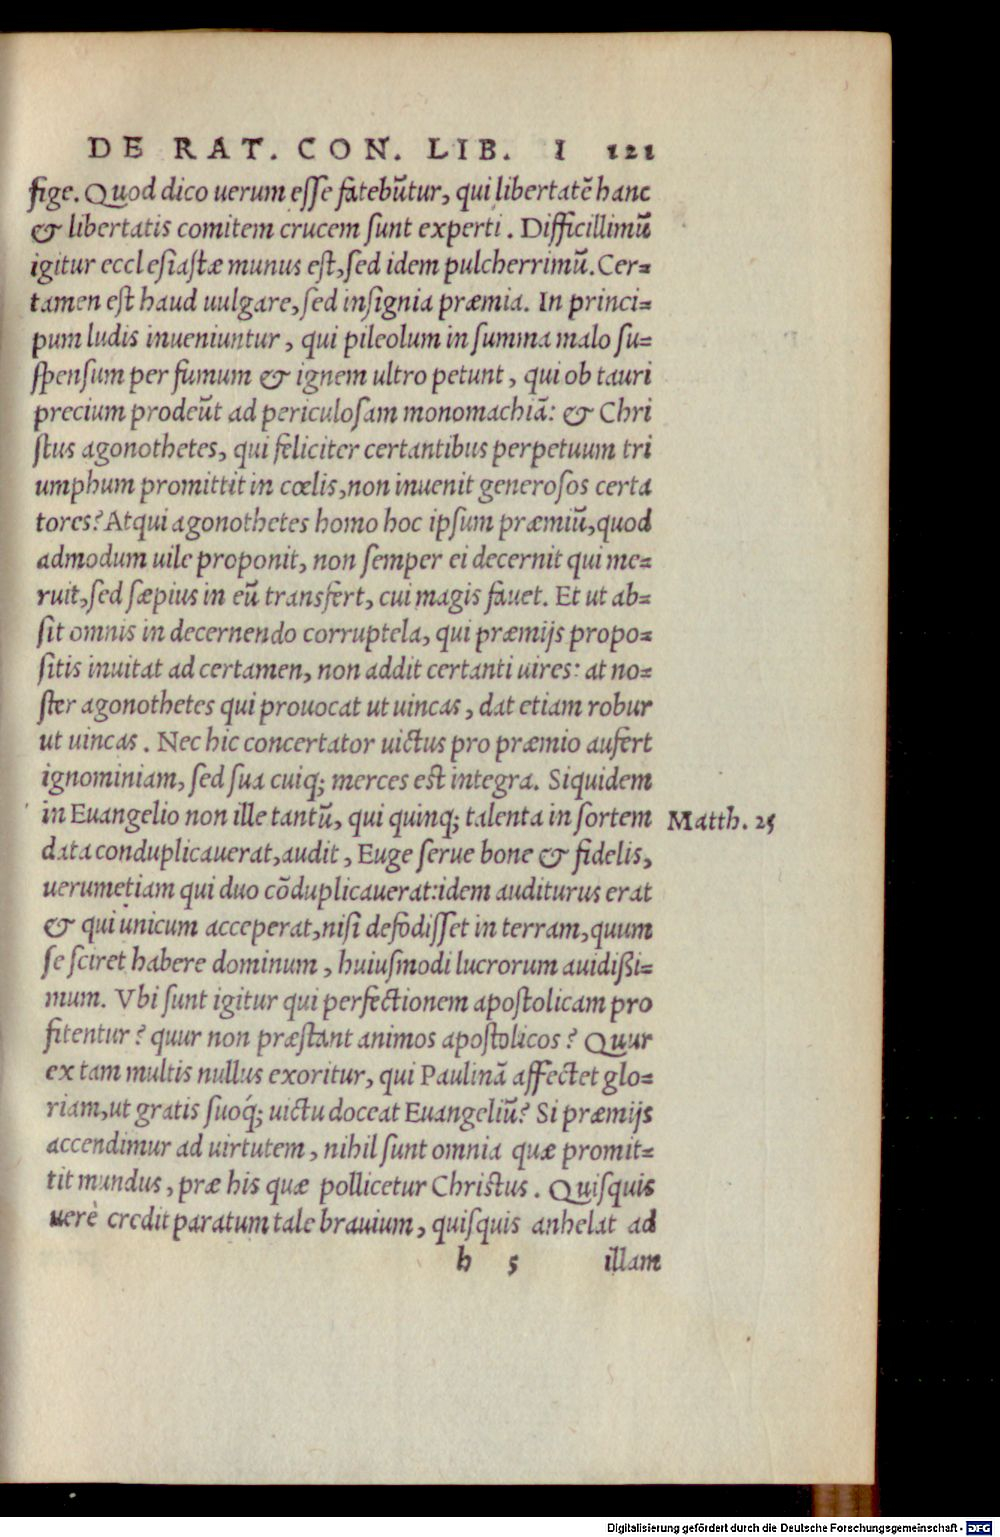 DE RAT. CON. LIB. I 121
fige. Quod dico uerum esse fatebũtur, qui libertatẽ hanc
& libertatis comitem crucem sunt experti. Difficillimũ
igitur ecclesiastæ munus est, sed idem pulcherrimũ. Cer=
tamen est haud uulgare, sed insignia præmia. In princi=
pum ludis inueniuntur, qui pileolum in summa malo su=
spensum per fumum & ignem ultro petunt, qui ob tauri
precium prodeũt ad periculosam monomachiã: & Chri
stus agonothetes, qui feliciter certantibus perpetuum tri
umphum promittit in cœlis, non inuenit generosos certa
tores? Atqui agonothetes homo hoc ipsum præmiũ, quod
admodum uile proponit, non semper ei decernit qui me=
ruit, sed sæpius in eũ transfert, cui magis fauet. Et ut ab=
sit omnis in decernendo corruptela, qui præmijs propo=
sitis inuitat ad certamen, non addit certanti uires: at no=
ster agonothetes qui prouocat ut uincas, dat etiam robur
ut uincas. Nec hic concertator uictus pro præmio aufert
ignominiam, sed sua cuiq; merces est integra. Siquidem
in Euangelio non ille tantũ, qui quinq; talenta in sortem
Matth. 25
data conduplicauerat, audit, Euge serue bone & fidelis,
uerumetiam qui duo cõduplicauerat: idem auditurus erat
& qui unicum acceperat, nisi defodisset in terram, quum
se sciret habere dominum, huiusmodi lucrorum auidißi=
mum. Vbi sunt igitur qui perfectionem apostolicam pro
fitentur? quur non præstant animos apostolicos? Quur
ex tam multis nullus exoritur, qui Paulinã affectet glo=
riam, ut gratis suoq́; uictu doceat Euangeliũ? Si præmijs
accendimur ad uirtutem, nihil sunt omnia quæ promit=
tit mundus, præ his quæ pollicetur Christus. Quisquis
uerè credit paratum tale brauium, quisquis anhelat ad
h 5 illam
Digitalisierung gefördert durch die Deutsche Forschungsgemeinschaft - DFG